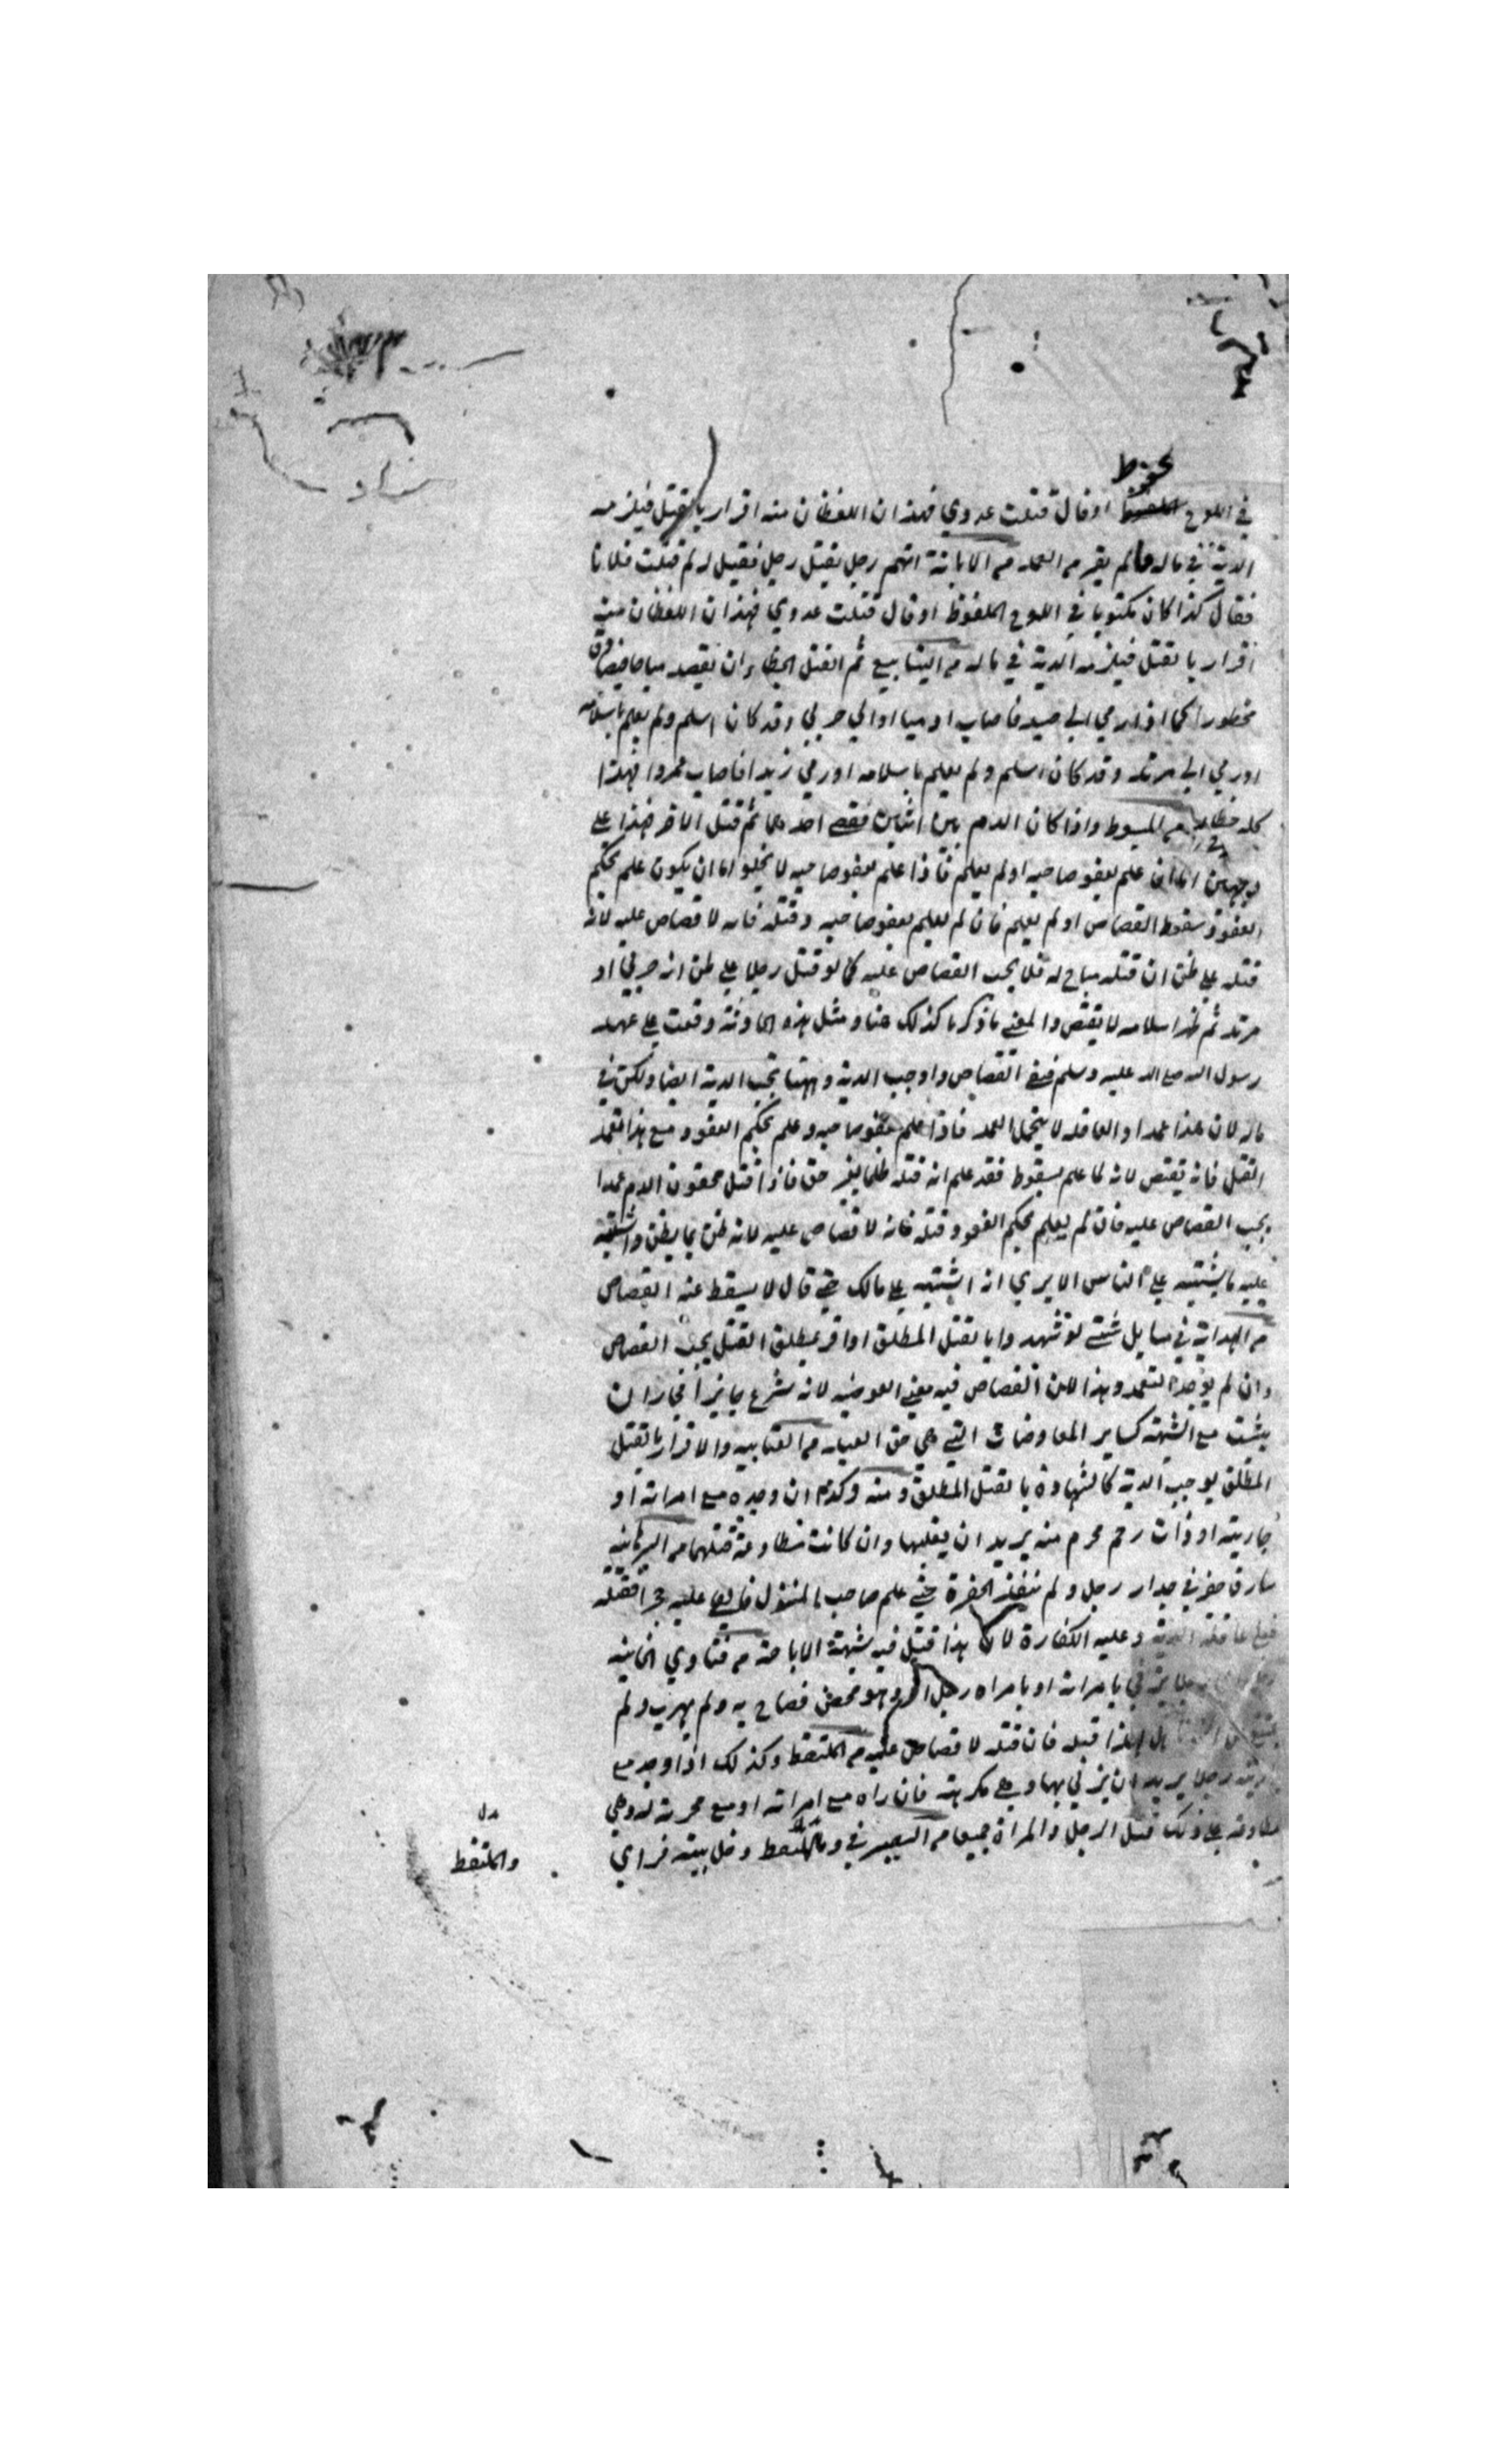 محفوظ
في اللوح او قال قتلت عدوي فهذان اللفظان منه اقرار بالقتل فيلزمه
الدية في ماله ما لم يقر من العمد من الابانة اتهم رجل بقتل رجل فقيل له لم قتلت فلانا
فقال كذا كان مكتوبا في اللوح المحفوظ او قال قتلت عدوي فهذان اللفظان منه
اقرار بالقتل فيلزمه الدية في ماله من الينابيع ثم القتل الخطاء ان يقصد مباحا فيصادف
محظورا كما اذا رمي الي صيد فاصاب ادميا او الي حربي وقد كان اسلم ولم يعلم باسلامه
او رمي الي مرتد وقد كان اسلم ولم يعلم باسلامه او رمي زيدا فاصاب عمروا فهذا
كله خطاء من المبسوط واذا كان الدم بين اثنين فعفي احدهما ثم قتل الاخر فهذا علي
وجهين اما ان علم بعفو صاحبه او لم يعلم فاذا علم بعفو صاحبه لا يخلو اما ان يكون علم بحكم
العفو وسقوط القصاص او لم يعلم فان لم يعلم بعفو صاحبه وقتله فانه لا قصاص عليه لانه
قتله علي ظن ان قتله مباح له فلا يجب القصاص عليه كما لو قتل رجلا علي ظن انه حربي او
مرتد ثم ظهر اسلامه لا يقتص والمعني ما ذكرنا كذلك هنا ومثل هذه الحادثة وقعت علي عهد
رسول الله صلع الله عليه وسلم القصاص واوجب الدية وههنا تجب الدية ايضا ولكن في
ماله لان هذا عمدا والعاقلة لا يتحمل العمد فاذا علم بعفو صاحبه وعلم بحكم العفو ومع هذا تعمد
القتل فانه يقتص لانه لما علم بسقوط فقد علم انه قتله ظلما بغير حق فاذا قتل محقون الدم عمدا
يجب القصاص عليه فان لم يعلم بحكم العفو وقتله فانه لا قصاص عليه لانه ظن بما يظن واشتبه
عليه ما يشتبه علي الناس الا يري انه اشتبه علي مالك حتي قال لا يسقط عنه القصاص
من الهداية في مسايل شتي لو شهدوا بالقتل المطلق او اقر بمطلق القتل يجب القصاص
وان لم يوجد التعمد وهذا لان القصاص فيه معني العوضيه لانه شرع جابزا فجاز ان
يثبت مع الشبهة كساير المعاوضات التي هي حق العباد من العتابيه والاقرار بالقتل
المطلق يوجب الدية كالشهادة بالقتل المطلق ومنه وكذا ان وجده مع امراته او
جاريته او ذات رحم محرم منه يريد ان يغلبها وان كانت مطاوعة قتلهما من البرهانيه
سارق حفر في جدار رجل ولم ينفذ الحفرة حتي علم صاحب المنزل فالقي عليه حجرا فقتله
فعلي عاقلته الدية وعليه الكفارة لان هذا قتيل فيه شبهة الاباحة من فتاوي الخانيه
رجلا يزني بامراته او بامراه رجل اخر وهو محصن فصاح به ولم يهرب ولم
يمتنع قتله فان قتله لا قصاص عليه من الملتقط وكذلك اذا وجد مع
رجلا يريد ان يزني بها وهي مكرهة فان راه مع امراته او مع محرمة له وهي
مطاوعة علي ذلك قتل الرجل والمراة جميعا من التبصير في دخل بيته فراي
والملتقط